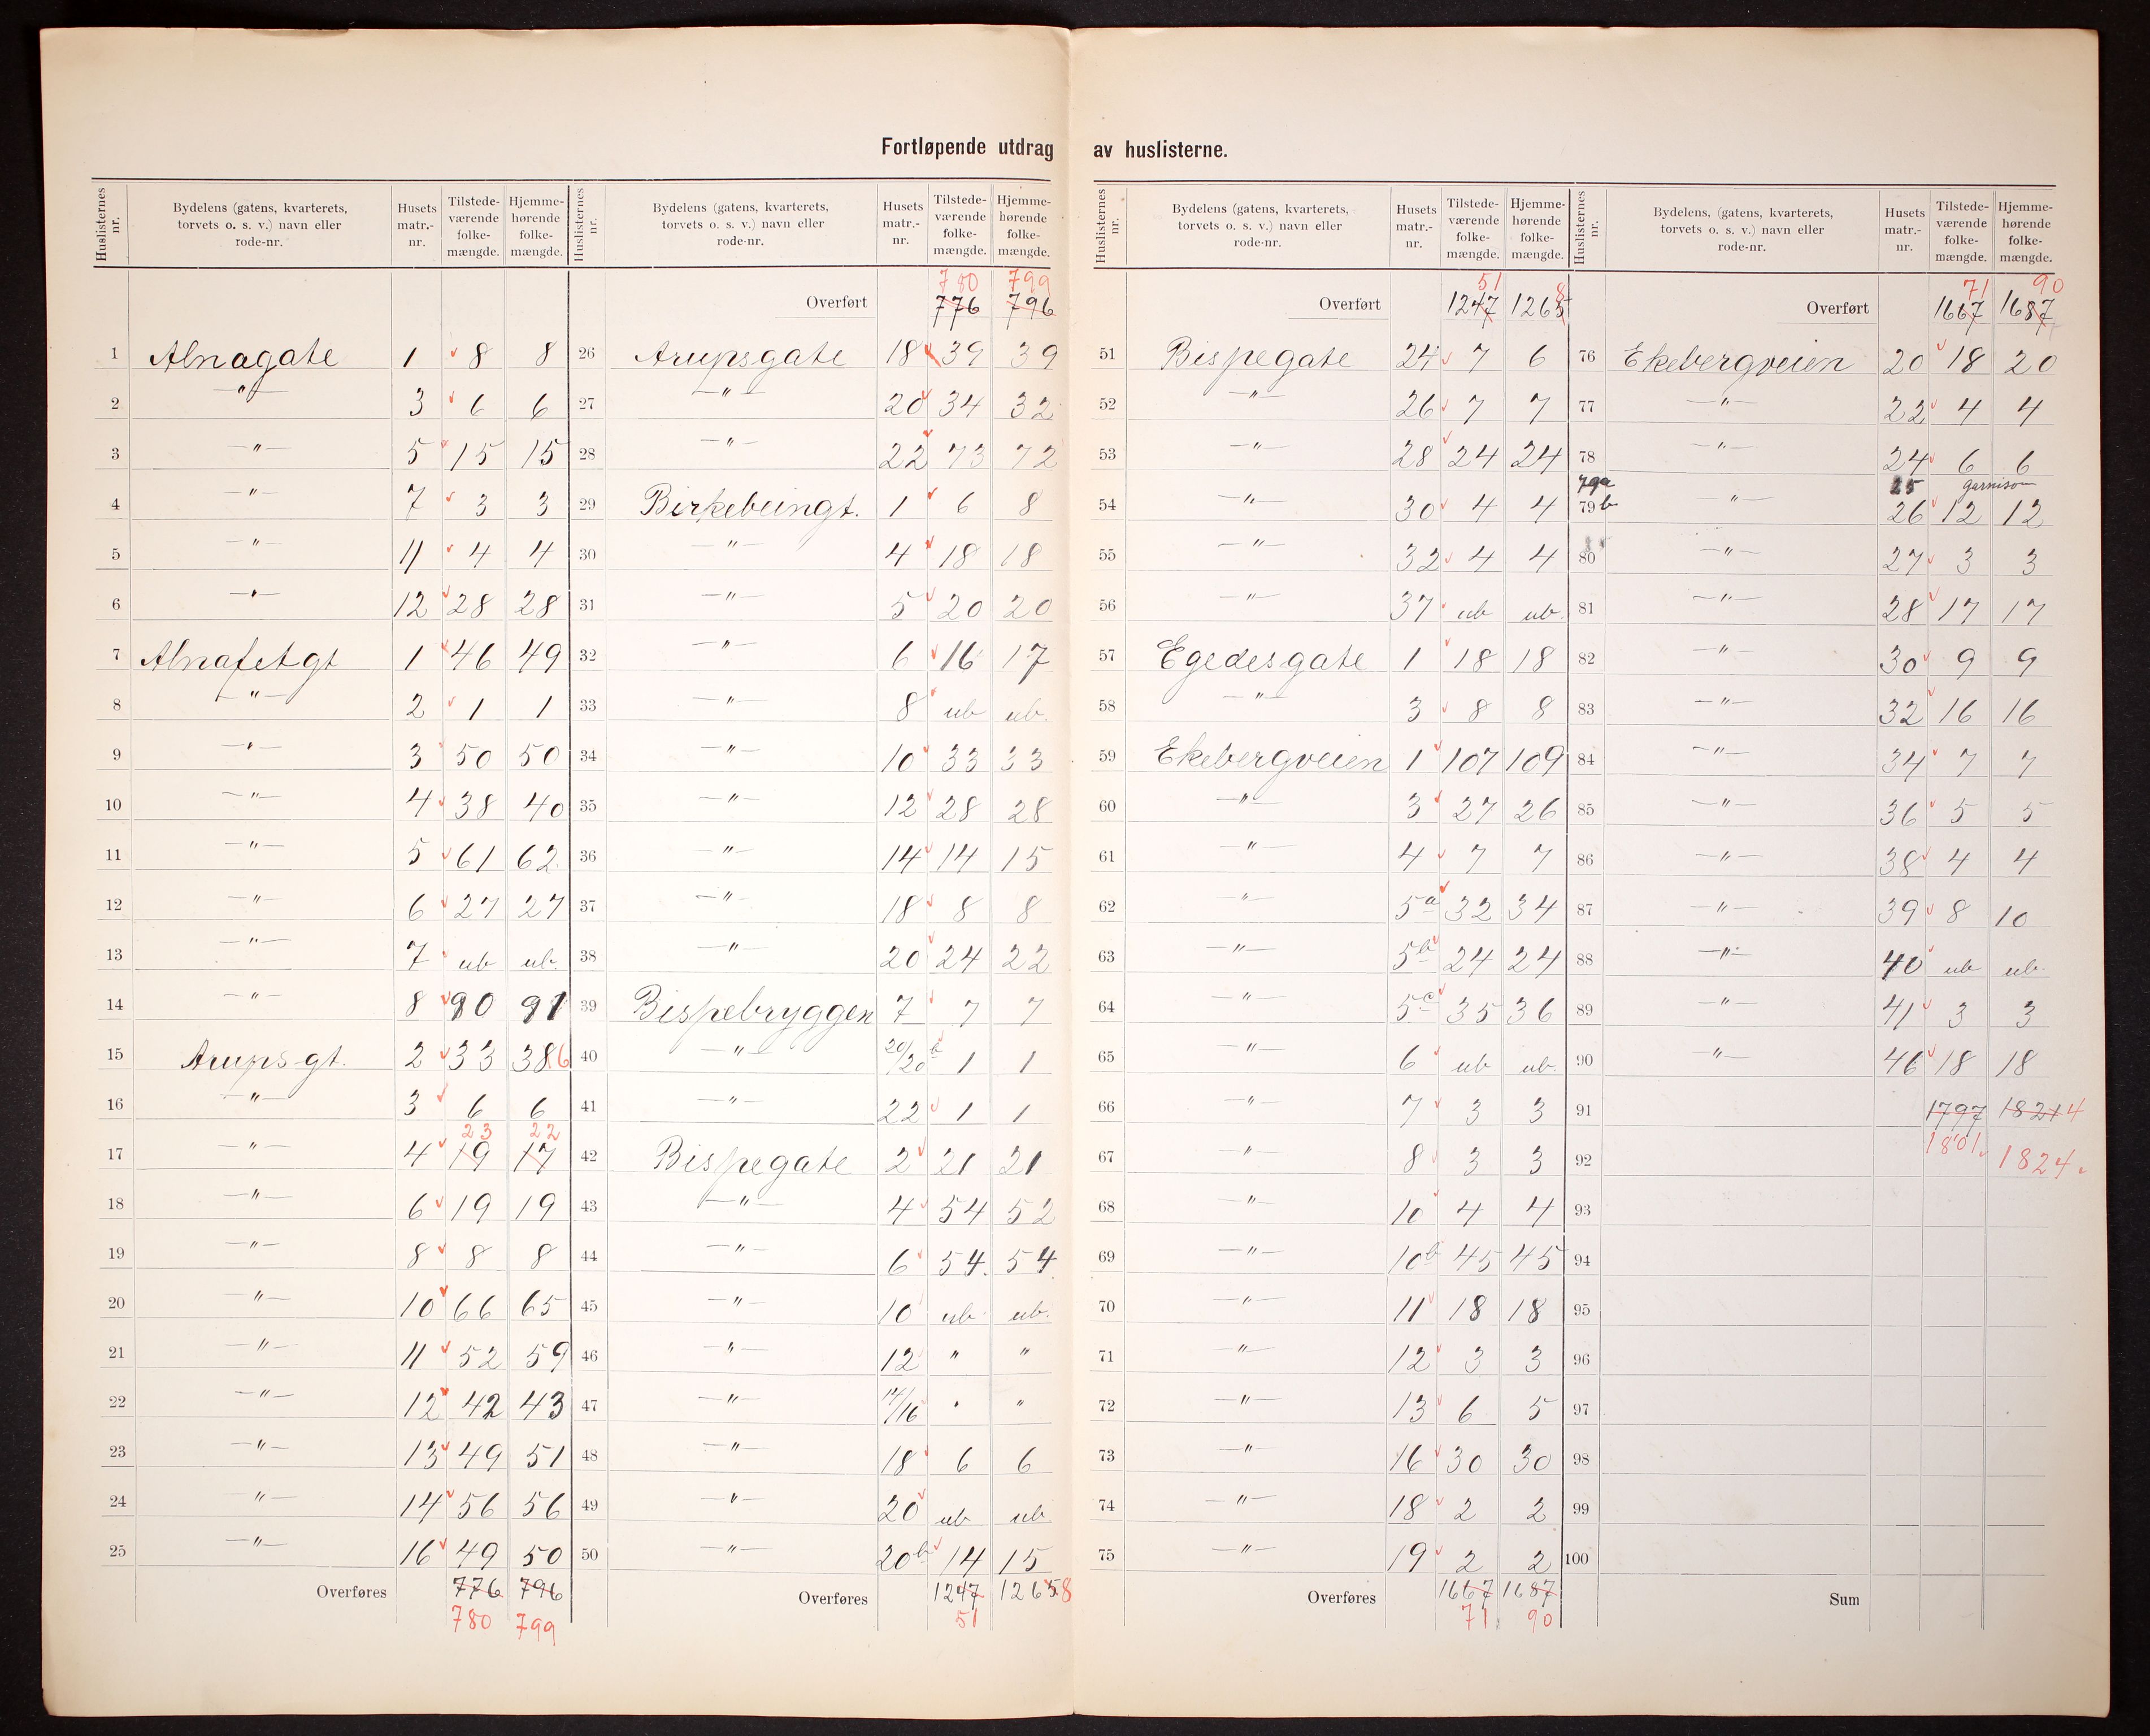 Fortløpende utdrag av huslisterne.
Huslisternes nr. | Bydelens (gatens, kvarterets, torvets o. s. v.) navn eller rode-nr. | Husets matr.-nr. | Tilstede-værende folke-mængde. | Hjemme-hørende folke-mængde.
1 Alnagate 1 8 8
2 —"— 3 6 6
3 —"— 5 15 15
4 —"— 7 3 3
5 —"— 11 4 4
6 —"— 12 28 28
7 Alnafetgt 1 46 49
8 —"— 2 1 1
9 —"— 3 50 50
10 —"— 4 38 40
11 —"— 5 61 62
12 —"— 6 27 27
13 —"— 7 ub ub.
14 —"— 8 90 91
15 Arups-gt. 2 33 38 6
16 —"— 3 6 6
23 22
17 —"— 4 19 17
18 —"— 6 19 19
19 —"— 8 8 8
20 —"— 10 66 65
21 —"— 11 52 59
22 —"— 12 42 43
23 —"— 13 49 51
24 —"— 14 56 56
25 —"— 16 49 50
Overføres 776 796
780 799
Huslisternes nr. | Bydelens (gatens, kvarterets, torvets o. s. v.) navn eller rode-nr. | Husets matr.-nr. | Tilstede-værende folke-mængde. | Hjemme-hørende folke-mængde.
780 799
Overført 776 796
26 Arupsgate 18 39 39
27 —"— 20 34 32
28 —"— 22 73 72
29 Birkebeingt. 1 6 8
30 —"— 4 18 18
31 —"— 5 20 20
32 —"— 6 16 17
33 —"— 8 ub ub.
34 —"— 10 33 33
35 —"— 12 28 28
36 —"— 14 14 15
37 —"— 18 8 8
38 —"— 20 24 22
39 Bispebryggen 7 7 7
40 —"— 20/20b 1 1
41 —"— 22 1 1
42 Bispegate 2 21 21
43 —"— 4 54 52
44 —"— 6 54. 54
45 —"— 10 ub ub.
46 —"— 12 " "
47 —"— 14/16 " "
48 —"— 18 6 6
49 —"— 20 ub ub.
50 —"— 20b 14 15
Overføres 1247 1265 8
51
Huslisternes nr. | Bydelens (gatens, kvarterets, torvets o. s. v.) navn eller rode-nr. | Husets matr.-nr. | Tilstede-værende folke-mængde. | Hjemme-hørende folke-mængde.
51 8
Overført 1247 1265
51 Bispegate 24 7 6
52 —"— 26 7 7
53 —"— 28 24 24
54 —"— 30 4 4
55 —"— 32 4 4
56 —"— 37 ub ub.
57 Egedesgate 1 18 18
58 —"— 3 8 8
59 Ekebergveien 1 107 109
60 —"— 3 27 26
61 —"— 4 7 7
62 —"— 5a 32 34
63 —"— 5b 24 24
64 —"— 5c 35 36
65 —"— 6 ub ub.
66 —"— 7 3 3
67 —"— 8 3 3
68 —"— 10 4 4
69 —"— 10b 45 45
70 —"— 11 18 18
71 —"— 12 3 3
72 —"— 13 6 5
73 —"— 16 30 30
74 —"— 18 2 2
75 —"— 19 2 2
Overføres 1667 1687
71 90
Huslisternes nr. | Bydelens, (gatens, kvarterets, torvets o. s. v.) navn eller rode-nr. | Husets matr.-nr. | Tilstede-værende folke-mængde. | Hjemme-hørende folke-mængde.
71 90
Overført 1667 1687
76 Ekebergveien 20 18 20
77 —"— 22 4 4
78 —"— 24 6 6
79a 25 garnison
79b —"— 26 12 12
80 —"— 27 3 3
81 —"— 28 17 17
82 —"— 30 9 9
83 —"— 32 16 16
84 —"— 34 7 7
85 —"— 36 5 5
86 —"— 38 4 4
87 —"— 39 8 10
88 —"— 40 ub ub.
89 —"— 41 3 3
90 —"— 46 18 18
91 1797 1821 4
92 1801 1824
93
94
95
96
97
98
99
100
Sum